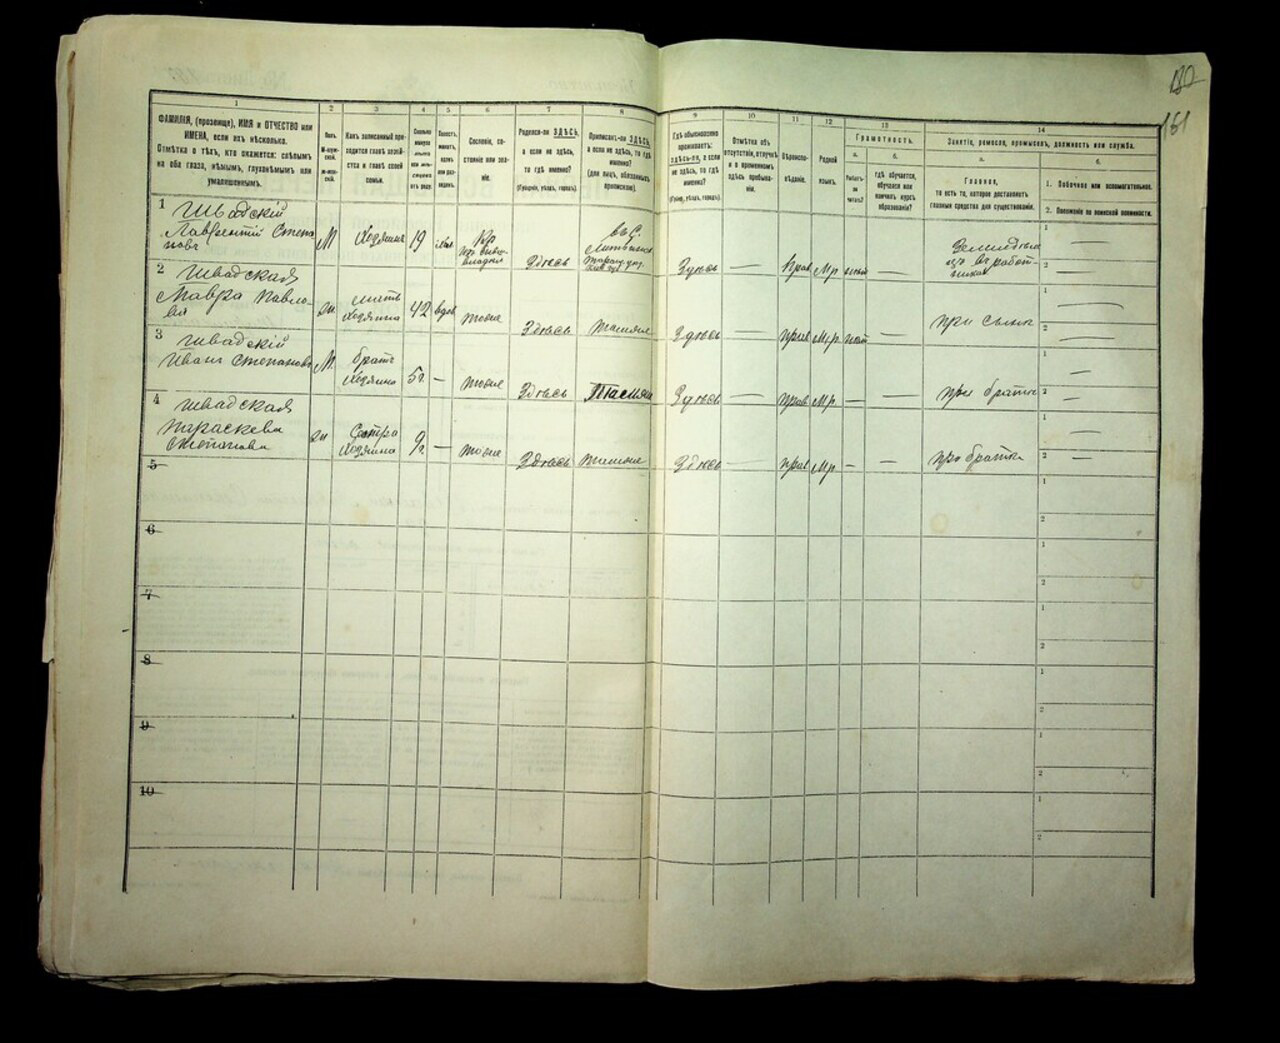 180
181
1
2
3
4
5
6
7
8
9
10
11
12
13
14
ФАМИЛІЯ, (прозвище), ИМЯ и ОТЧЕСТВО или
ИМЕНА, если ихъ нѣсколько.
Отмѣтка о тѣхъ, кто окажется: слѣпымъ
на оба глаза, нѣмымъ, глухонѣмымъ или
умалишеннымъ.
Полъ.
Сословіе, со-
стояніе или зва-
ніе.
Родился-ли ЗДѢСЬ,
а если не здѣсь,
то гдѣ именно?
(Губернія, уѣздъ, городъ).
Приписанъ-ли ЗДѢСЬ,
а если не здѣсь, то гдѣ
именно?
(для лицъ, обязанныхъ
припискою).
Гдѣ обыкновенно
проживаетъ:
здѣсь-ли, а если
не здѣсь, то гдѣ
именно?
(Губер., уѣздъ, городъ).
Отмѣтка объ
отсутствіи, отлучкѣ
и о временномъ
здѣсь пребыва-
ніи.
Вѣроиспо-
вѣданіе.
Родной
языкъ.
Грамотность.
а.
б.
Умѣетъ-
ли
читать?
гдѣ обучается,
обучался или
кончилъ курсъ
образованія?
Занятіе, ремесло, промыселъ, должность или служба.
а.
б.
Главное,
то есть то, которое доставляетъ
главныя средства для существованія.
1. Побочное или вспомогательное.
2. Положеніе по воинской повинности.
1
Швадскій
Лаврентій Степа
нове
М
Хозяинъ
19
Кр
Здѣсь
Здѣсь
—
Прав
Мр
нѣт
—
1 —
2 —
2
Швадская
Мавра Павло-
ва
мать
хозяина
42
вдов
тоже
Здѣсь
тамже
Здѣсь
—
прав
Мр.
нѣт
при сынѣ
1 —
2 —
3
Швадскій
Иванъ Степановъ
М
братъ
хозяина
5г.
—
тоже
Здѣсь
тамже
Здѣсь
—
прав
Мр.
—
—
при братѣ
1 —
2 —
4
Швадская
Параскева
Степанова
Сестра
хозяина
9г.
—
тоже
Здѣсь
тамже
Здѣсь
—
прав
Мр.
—
—
при братѣ
1 —
2 —
5
1
2
6
1
2
7
1
2
8
1
2
9
1
2
10
1
2